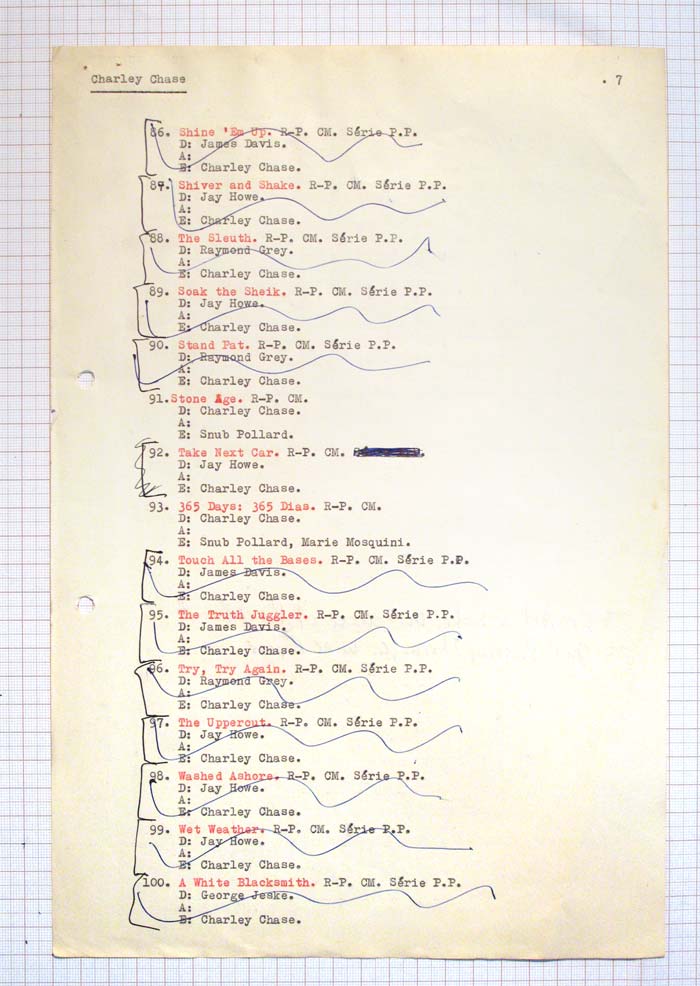 Charley Chase
. 7
86. Shine 'Em Up. R-P. CM. Série P.P.
D: James Davis.
A:
E: Charley Chase.
87. Shiver and Shake. R-P. CM. Série P.P.
D: Jay Howe.
A:
E: Charley Chase.
88. The Sleuth. R-P. CM. Série P.P.
D: Raymond Grey.
A:
E: Charley Chase.
89. Soak the Sheik. R-P. CM. Série P.P.
D: Jay Howe.
A:
E: Charley Chase.
90. Stand Pat. R-P. CM. Série P.P.
D: Raymond Grey.
A:
E: Charley Chase.
91. Stone Age. R-P. CM.
D: Charley Chase.
A:
E: Snub Pollard.
92. Take Next Car. R-P. CM.
D: Jay Howe.
A:
E: Charley Chase.
93. 365 Days: 365 Dias. R-P. CM.
D: Charley Chase.
A:
E: Snub Pollard, Marie Mosquini.
94. Touch All the Bases. R-P. CM. Série P.P.
D: James Davis.
A:
E: Charley Chase.
95. The Truth Juggler. R-P. CM. Série P.P.
D: James Davis.
A:
E: Charley Chase.
96. Try, Try Again. R-P. CM. Série P.P.
D: Raymond Grey.
A:
E: Charley Chase.
97. The Uppercut. R-P. CM. Série P.P.
D: Jay Howe.
A:
E: Charley Chase.
98. Washed Ashore. R-P. CM. Série P.P.
D: Jay Howe.
A:
E: Charley Chase.
99. Wet Weather. R-P. CM. Série P.P.
D: Jay Howe.
A:
E: Charley Chase.
100. A White Blacksmith. R-P. CM. Série P.P.
D: George Jeske.
A:
E: Charley Chase.